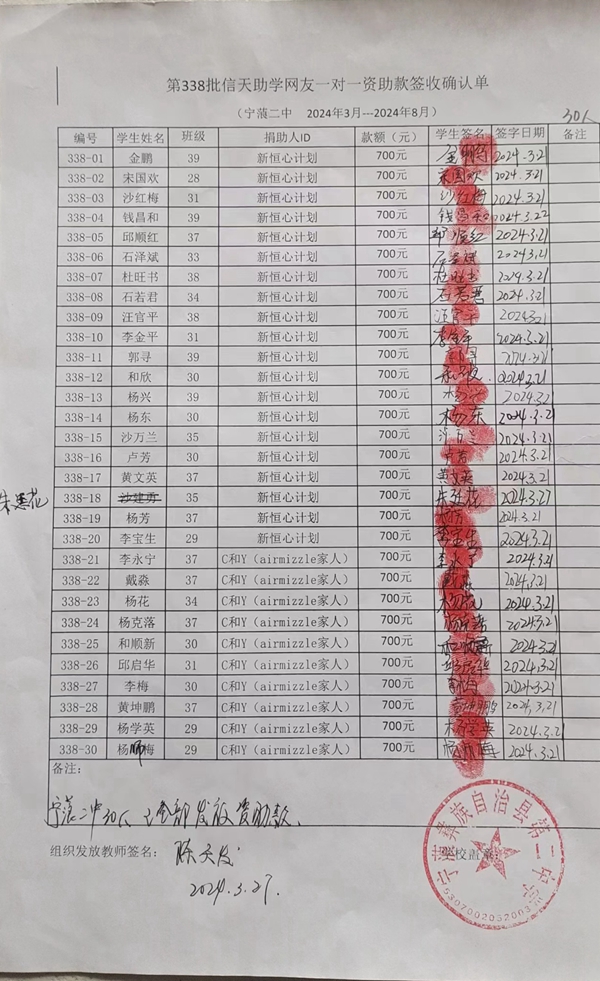 第338批信天助学网友一对一资助款签收确认单
（宁蒗二中 2024年3月---2024年8月）
30人
编号 学生姓名 班级 捐助人ID 款额（元） 学生签名 签字日期 备注
338-01 金鹏 39 新恒心计划 700元 金鹏 2024.3.21
338-02 宋国欢 28 新恒心计划 700元 宋国欢 2024.3.21
338-03 沙红梅 31 新恒心计划 700元 沙红梅 2024.3.21
338-04 钱昌和 39 新恒心计划 700元 钱昌和 2024.3.22
338-05 邱顺红 37 新恒心计划 700元 邱顺红 2024.3.21
338-06 石泽斌 33 新恒心计划 700元 石泽斌 2024.3.21
338-07 杜旺书 38 新恒心计划 700元 杜旺书 2024.3.21
338-08 石若君 34 新恒心计划 700元 石若君 2024.3.21
338-09 汪官平 38 新恒心计划 700元 汪官平 2024.3.21
338-10 李金平 31 新恒心计划 700元 李金平 2024.3.21
338-11 郭寻 39 新恒心计划 700元 2024.3.21
338-12 和欣 30 新恒心计划 700元 2024.3.21
338-13 杨兴 39 新恒心计划 700元 2024.3.21
338-14 杨东 30 新恒心计划 700元 杨东 2024.3.21
338-15 沙万兰 35 新恒心计划 700元 沙万兰 2024.3.21
338-16 卢芳 30 新恒心计划 700元 卢芳 2024.3.21
338-17 黄文英 37 新恒心计划 700元 黄文英 2024.3.21
338-18 沙建勇 35 新恒心计划 700元 2024.3.27
338-19 杨芳 37 新恒心计划 700元 杨芳 2024.3.21
338-20 李宝生 29 新恒心计划 700元 李宝生 2024.3.21
338-21 李永宁 37 C和Y（airmizzle家人） 700元 李永宁 2024.3.21
338-22 戴淼 37 C和Y（airmizzle家人） 700元 戴淼 2024.3.21
338-23 杨花 34 C和Y（airmizzle家人） 700元 杨花 2024.3.21
338-24 杨克落 37 C和Y（airmizzle家人） 700元 杨克落 2024.3.21
338-25 和顺新 30 C和Y（airmizzle家人） 700元 和顺新 2024.3.21
338-26 邱启华 31 C和Y（airmizzle家人） 700元 邱启华 2024.3.21
338-27 李梅 30 C和Y（airmizzle家人） 700元 李梅 2024.3.21
338-28 黄坤鹏 37 C和Y（airmizzle家人） 700元 黄坤鹏 2024.3.21
338-29 杨学英 29 C和Y（airmizzle家人） 700元 杨学英 2024.3.21
338-30 杨丽梅 29 C和Y（airmizzle家人） 700元 2024.3.21
备注：
宁蒗二中30人已全部发放资助款。
组织发放教师签名： 学校盖章：
2024.3.27.
宁蒗彝族自治县第二中学